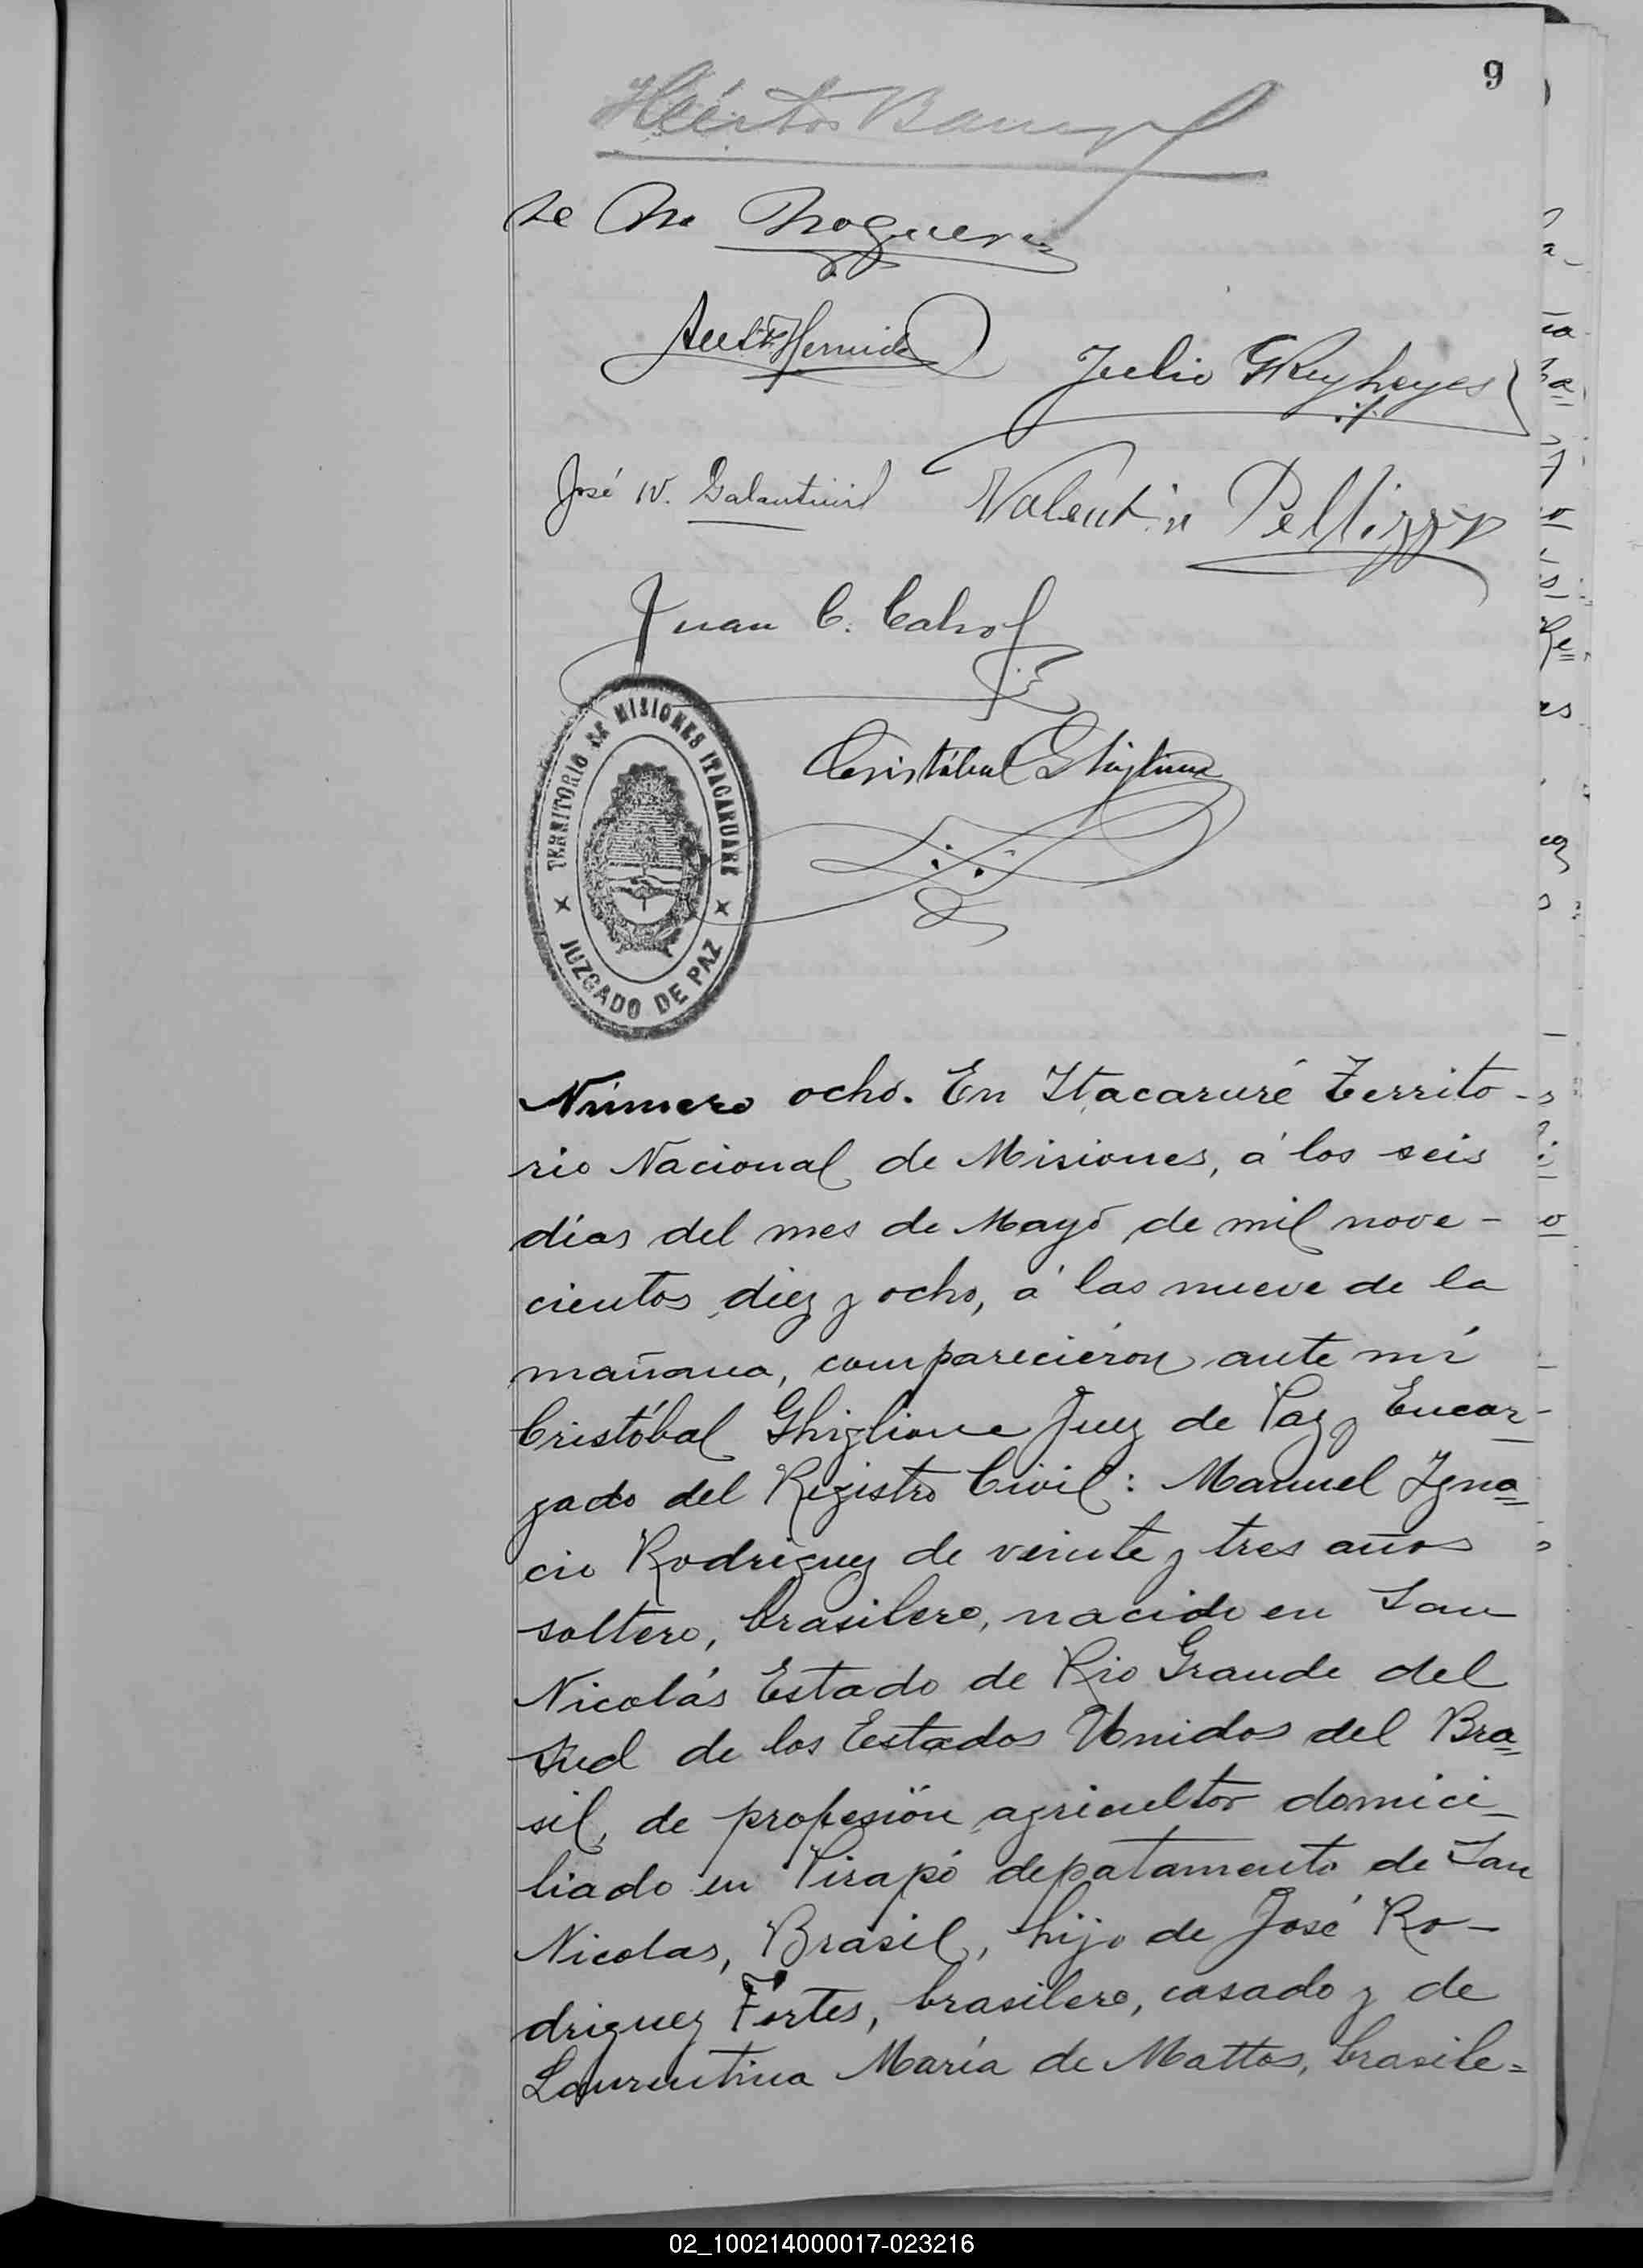 9
Héctor
de Noguera
Julio
José W. Valentín Pellizzer
Juan C. Cabral
TERRITORIO DE MISIONES ITACARUARE
JUZGADO DE PAZ
Cristóbal Ghiglione
Número ocho. En Itacaruré Territo-
rio Nacional de Misiones, á los seis
días del mes de Mayo de mil nove-
cientos diez y ocho, á las nueve de la
mañana, comparecieron ante mí
Cristóbal Ghiglione Juez de Paz y Encar-
gado del Registro Civil: Manuel Igna=
cio Rodriguez de veinte y tres años
soltero, brasilero, nacido en San
Nicolás Estado de Rio Grande del
Sud de los Estados Unidos del Bra=
sil, de profesión agricultor domici-
liado en Pirapó depatamento de San
Nicolas, Brasil, hijo de José Ro-
driguez Fortes, brasilero, casado y de
Laurentina María de Mattos, brasile=
02_100214000017-023216